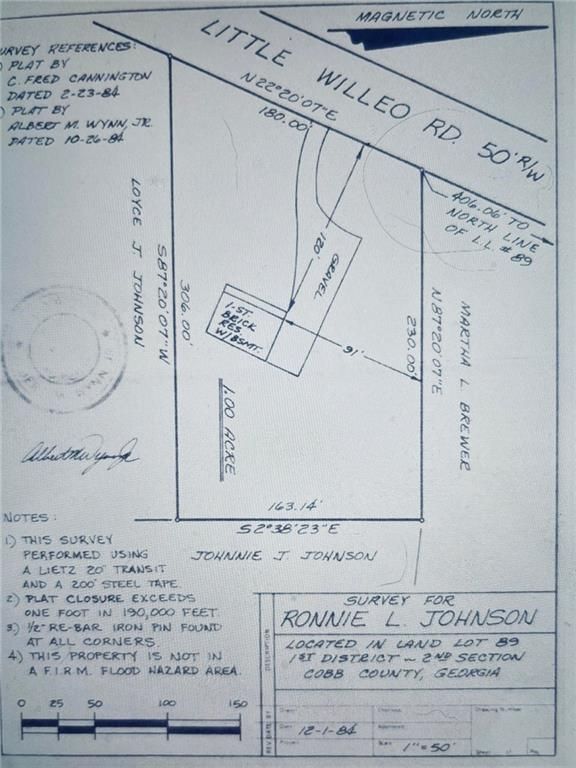 MAGNETIC NORTH
SURVEY REFERENCES:
1) PLAT BY
C. FRED CANNINGTON
DATED 2-23-84
2) PLAT BY
ALBERT M. WYNN, JR.
DATED 10-26-84
LITTLE WILLEO RD. 50' R/W
N 22°20'07"E
180.00'
406.06' TO
NORTH LINE
OF L.L. # 89
LOYCE J. JOHNSON
S 87°20'07"W
306.00'
120'
GRAVEL
1-ST.
BRICK
RES.
W/BSMT.
91'
230.00'
N 87°20'07"E
MARTHA L. BREWER
1.00 ACRE
163.14'
S 2°38'23"E
JOHNNIE J. JOHNSON
NOTES:
1) THIS SURVEY
PERFORMED USING
A LIETZ 20" TRANSIT
AND A 200' STEEL TAPE.
2) PLAT CLOSURE EXCEEDS
ONE FOOT IN 190,000 FEET.
3) 1/2" RE-BAR IRON PIN FOUND
AT ALL CORNERS.
4) THIS PROPERTY IS NOT IN
A F.I.R.M. FLOOD HAZARD AREA.
0 25 50 100 150
SURVEY FOR
RONNIE L. JOHNSON
LOCATED IN LAND LOT 89
1ST DISTRICT ~ 2ND SECTION
COBB COUNTY, GEORGIA
DESCRIPTION
REV DATE BY
Drawn
Checked
Drawing Number
Date 12-1-84
Approved
Project
Scale 1"=50'
Sheet of